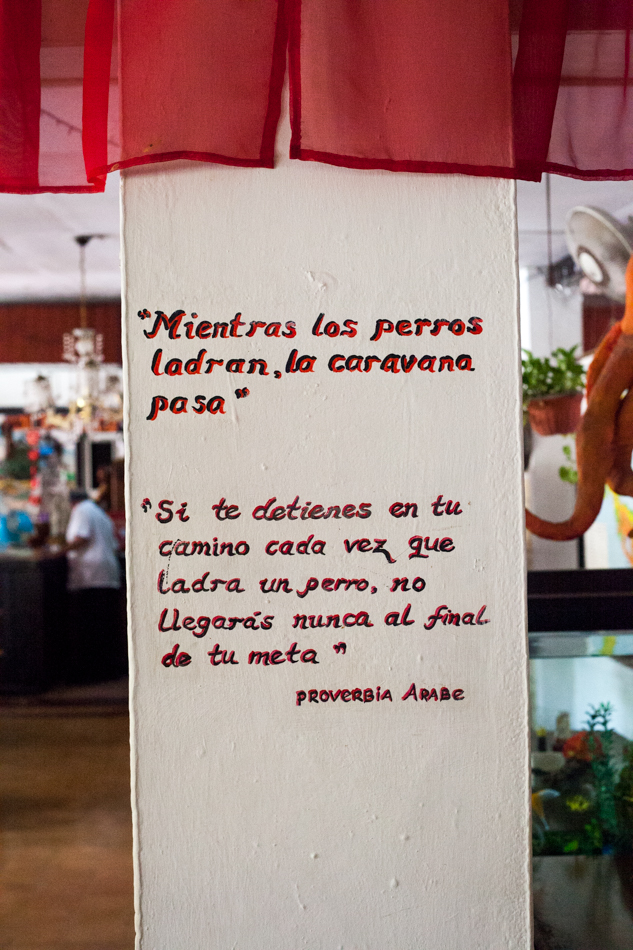 "Mientras los perros
ladran, la caravana
pasa"
"Si te detienes en tu
camino cada vez que
ladra un perro, no
llegarás nunca al final
de tu meta"
PROVERBiA ARABE